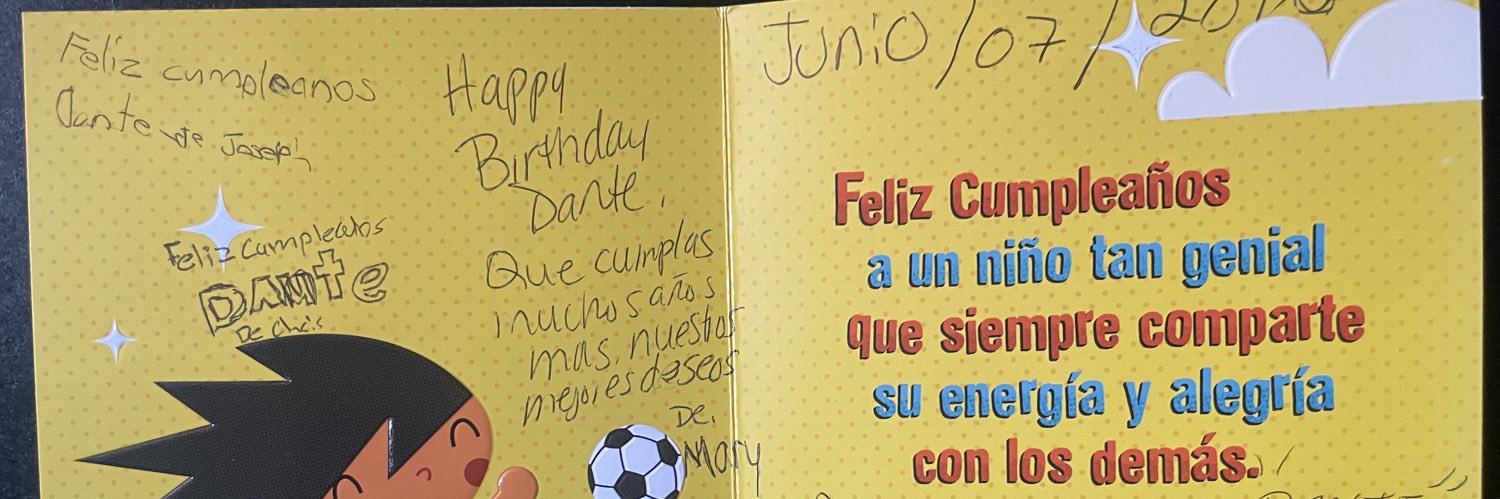 Feliz cumpleanos
Dante de Joseph
Feliz Cumpleaños
DANTE
De Chris
Happy
Birthday
Dante,
Que cumplas
muchos años
mas, nuestros
mejores deseos
De,
Mary
Junio/07/
Feliz Cumpleaños
a un niño tan genial
que siempre comparte
su energía y alegría
con los demás.